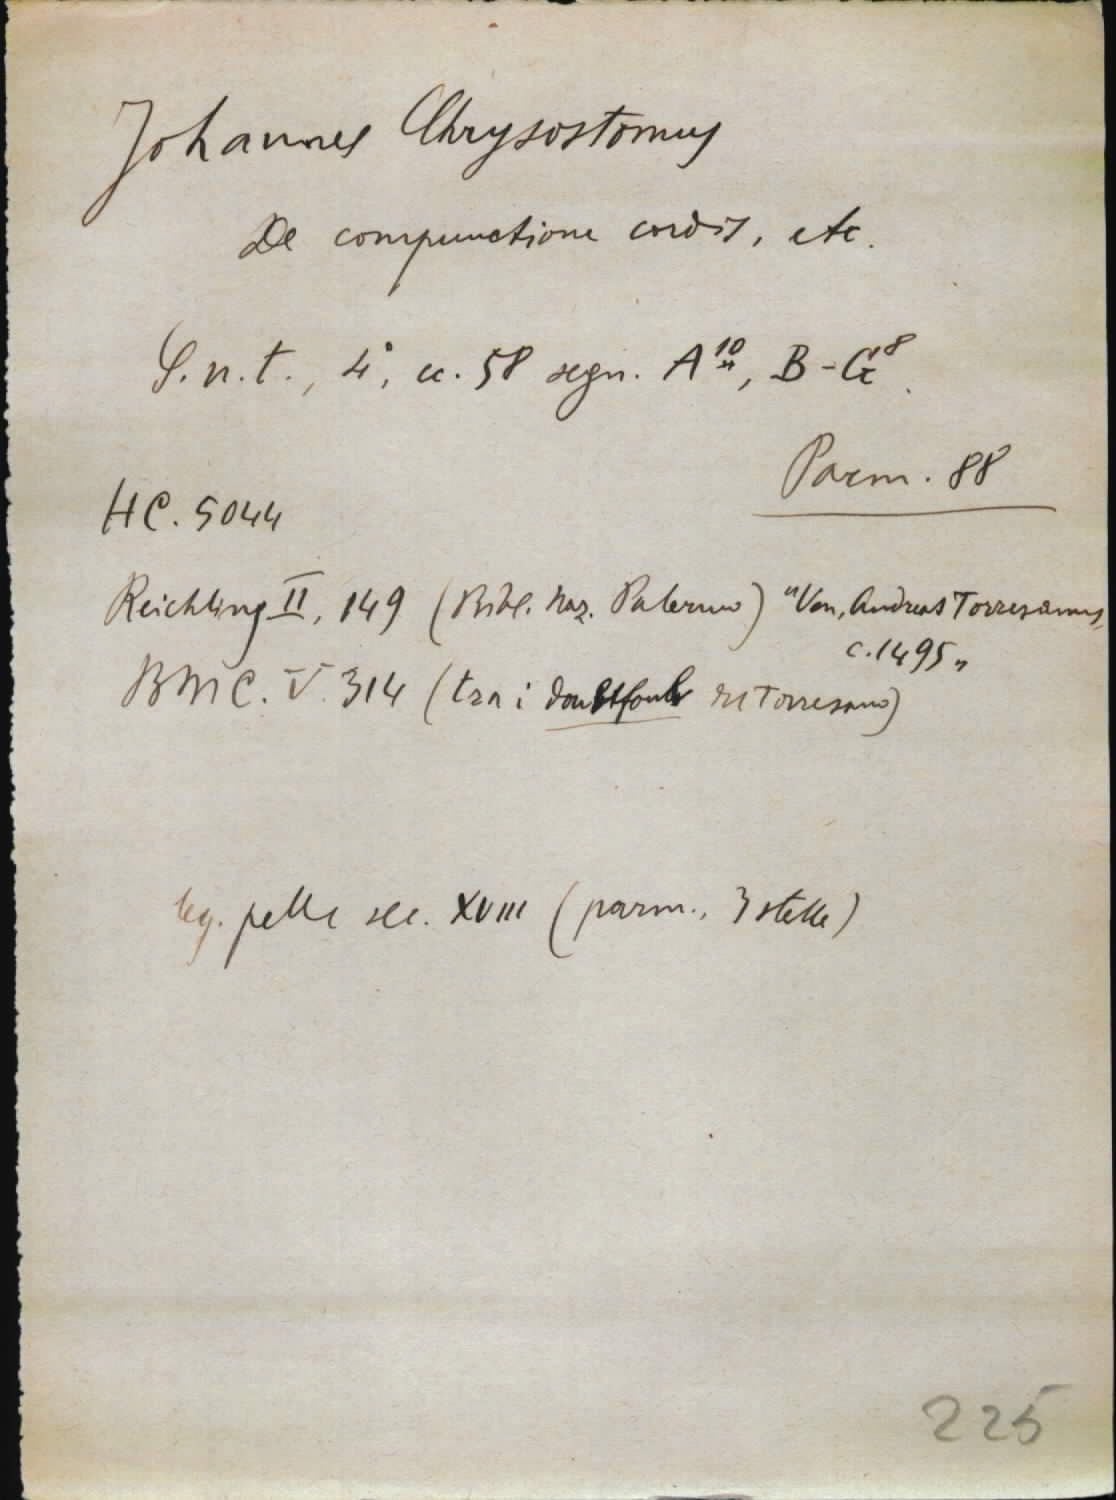 Johannes Chrysostomus
De compunctione cordis, etc.
S.n.t., 4°, cc. 58 segn. A¹⁰, B-G⁸.
Parm. 88
HC. 5044
Reichling II, 149 (Bibl. Naz. Palermo) "Ven, Andreas Torresanus,
c.1495"
BMC. V. 314 (tra i doubtfuls del Torresano)
leg. pelle sec. XVIII (parm., 3 stelle)
225